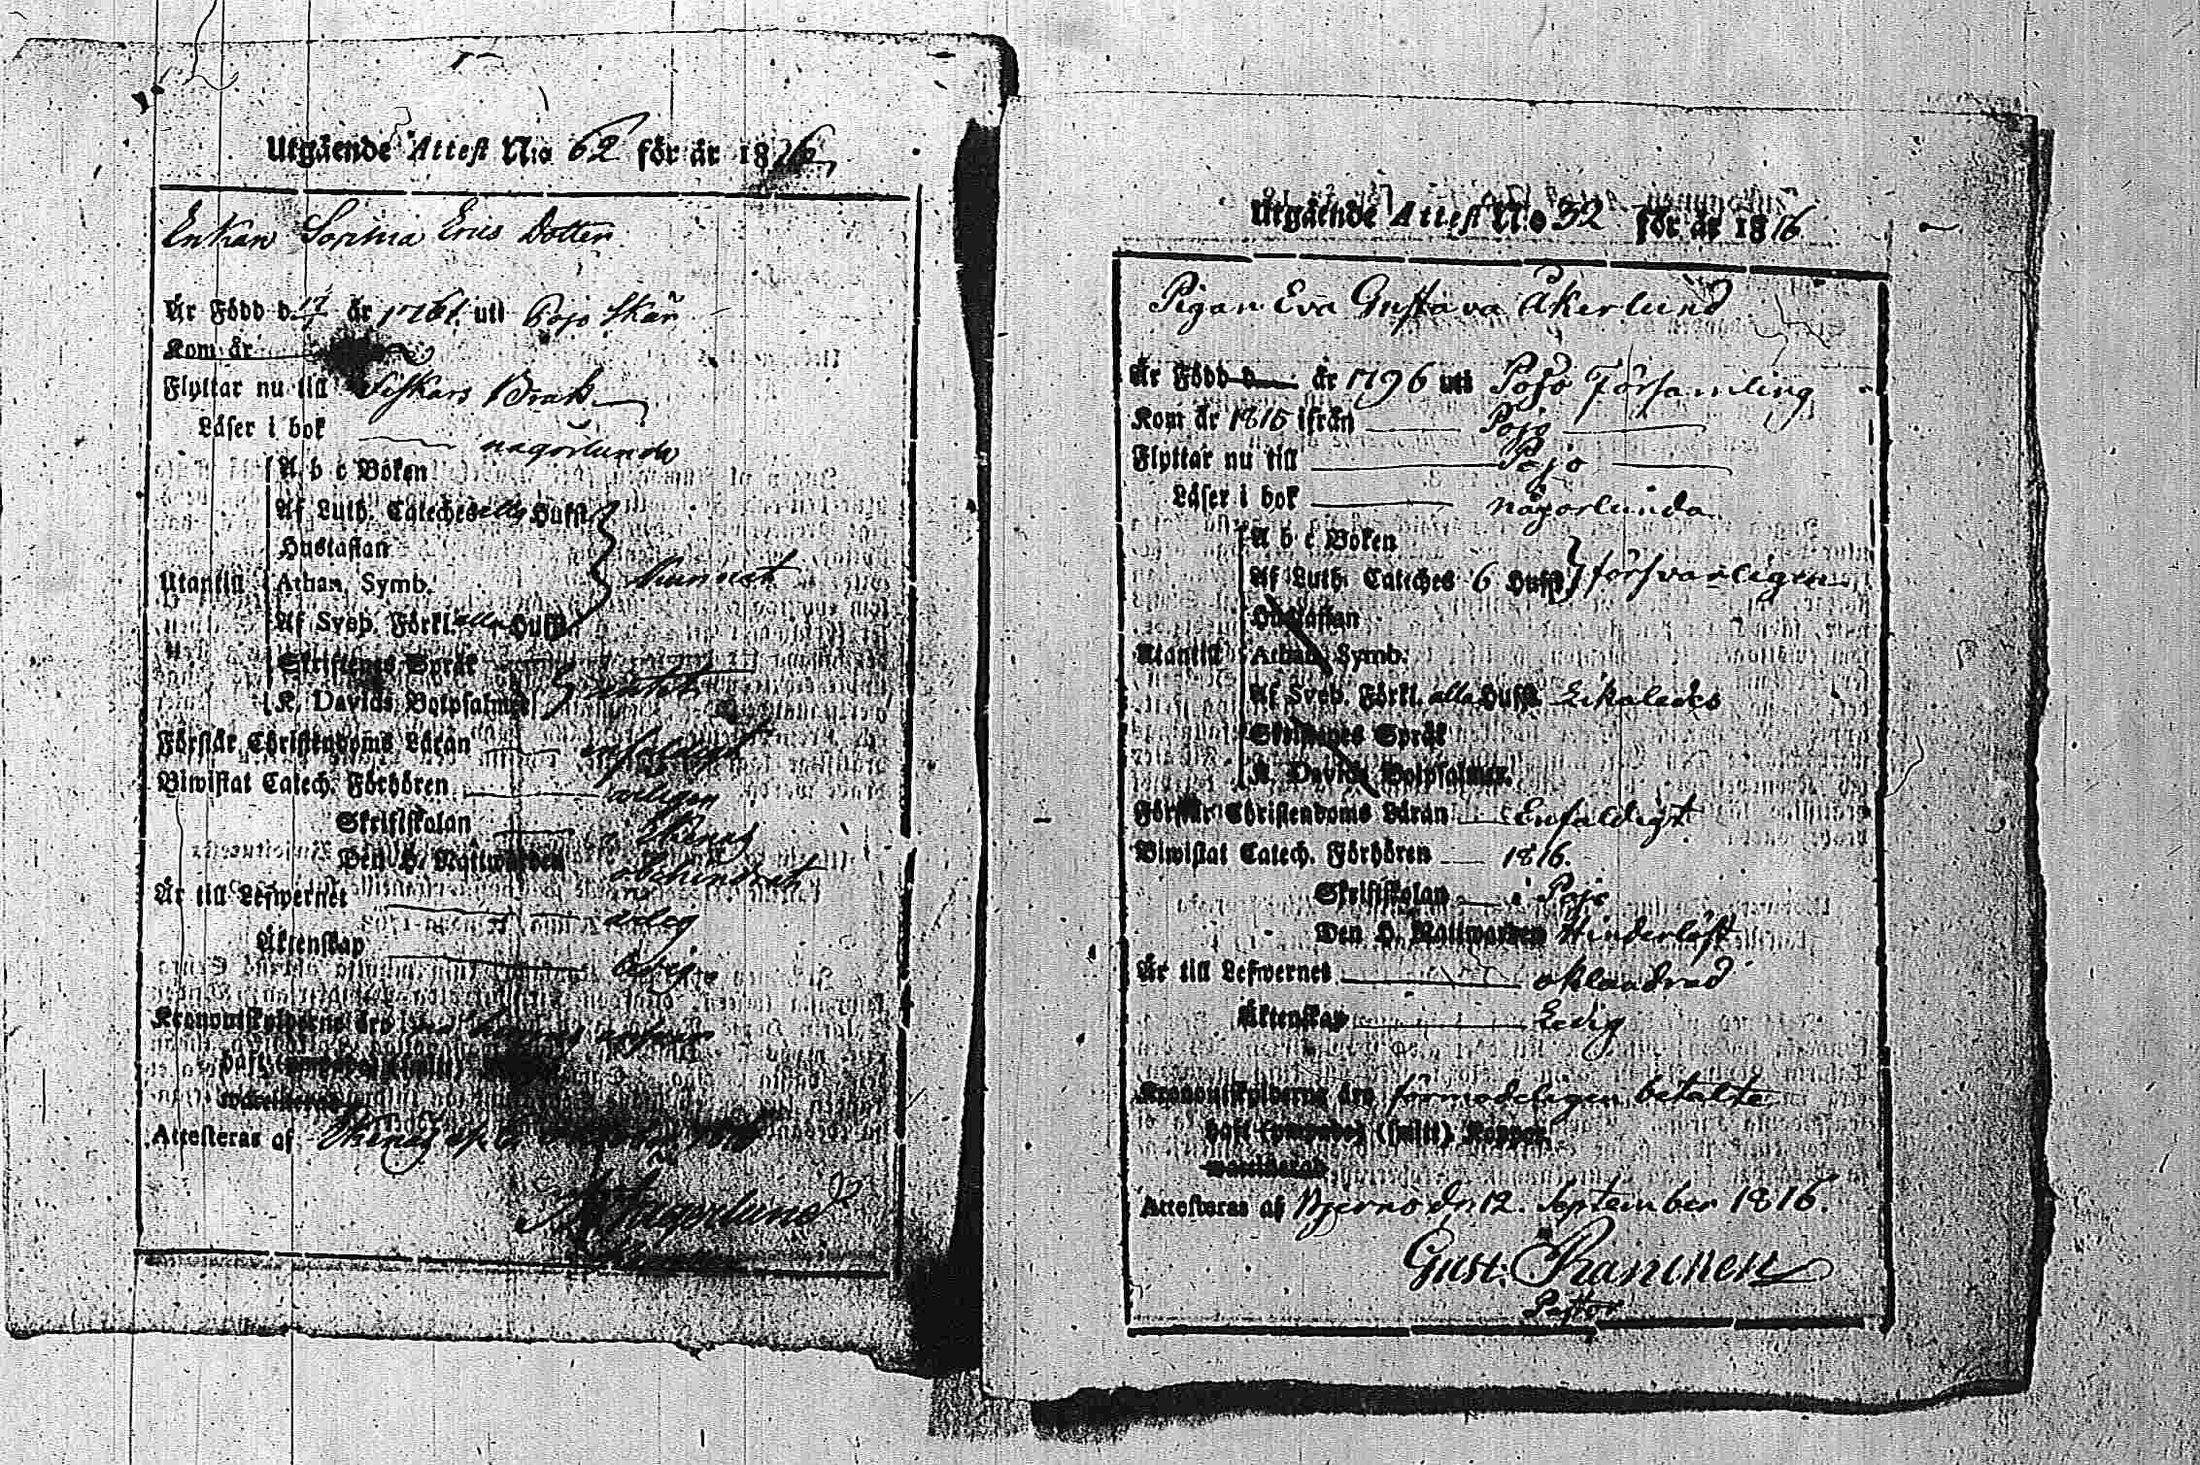 Utgående Attest N:o 62 för år 1816
Enkan Sophia Erics Dotter
Är Född d. 17 år 1761. uti Pojo Skän
Kom år
Flyttar nu till Fiskars Bruk
Läser i bok någorlunda
A b c Boken
Af Luth. Cateches alla Hufst.
Hustaflan
Utantill Athan. Symb. kunnat
Af Sveb. Förkl. alla Hufst.
Skriftenes Språk
K. Davids Botpsalmer intet
Förstår Christendoms Läran enfaldigt
Biwistat Catech. Förhören årligen
Skriftskolan i Ekenäs
Den H. Nattwarden obehindrat
Är till Lefwernet ärlig
Äktenskap
Kronoutskylderne äro
haft
Attesteras af Ekenäs
Utgående Attest N:o 32 för år 1816
Pigan Eva Gustava Åkerlund
Är Född d. år 1796 uti Pojo Församling
Kom år 1815 ifrån Pojo
Flyttar nu till Pojo
Läser i bok någorlunda
A b c Boken
Af Luth. Cateches 6 Hufst. försvarligen
Hustaflan
Utantill Athan. Symb.
Af Sveb. Förkl. alla Hufst. Likaledes
Skriftenes Språk
K. Davids Botpsalmer.
Förstår Christendoms Läran Enfaldigt
Biwistat Catech. Förhören 1816.
Skriftskolan i Pojo
Den H. Nattwarden Hinderlöst
Är till Lefwernet oklandrad
Äktenskap Ledig
Kronoutskylderne äro förmodeligen betalte
haft (smitt) Koppor.
vaccinerad
Attesteras af Bjerno dn 12. September 1816.
Gust. Rancken
Pastor